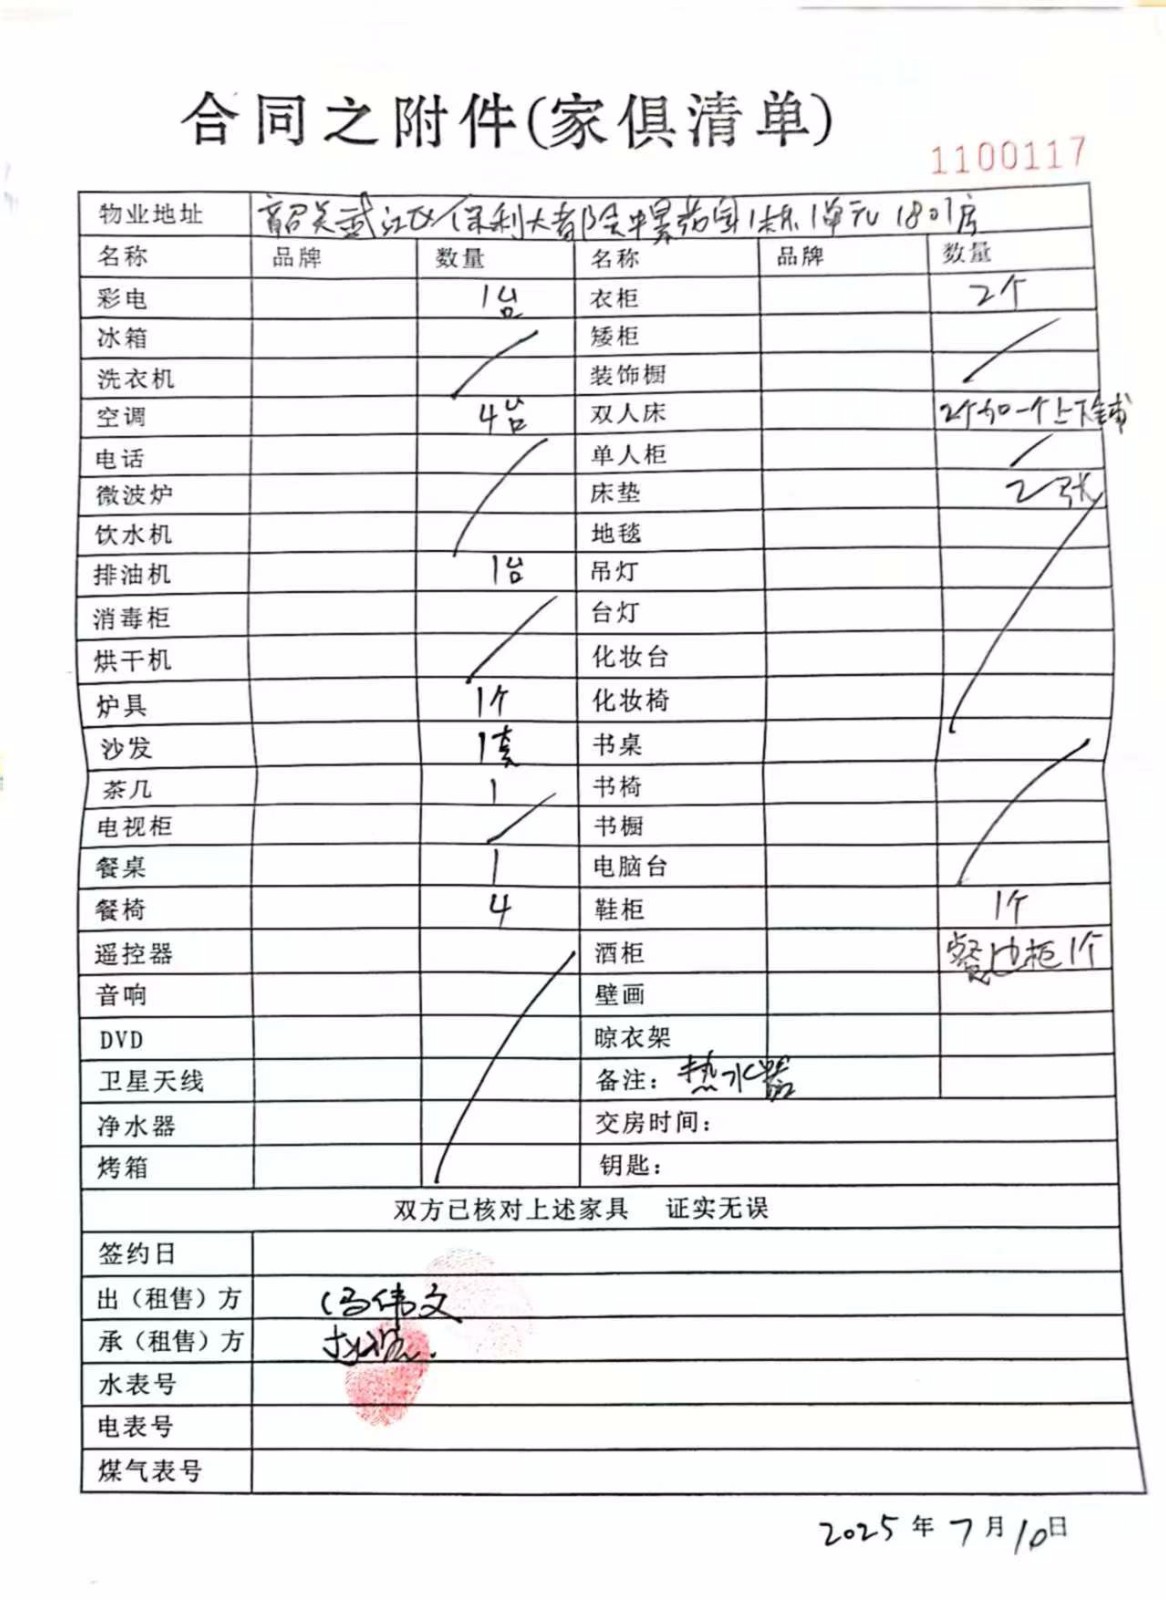 合同之附件(家俱清单)
1100117
物业地址 韶关武江区保利大都会中景药园1栋1单元1801房
名称 品牌 数量 名称 品牌 数量
彩电 1台 衣柜 2个
冰箱 矮柜
洗衣机 装饰橱
空调 4台 双人床 2个加一个上下铺
电话 单人柜
微波炉 床垫 2张
饮水机 地毯
排油机 1台 吊灯
消毒柜 台灯
烘干机 化妆台
炉具 1个 化妆椅
沙发 1套 书桌
茶几 1 书椅
电视柜 书橱
餐桌 1 电脑台
餐椅 4 鞋柜 1个
遥控器 酒柜 餐边柜1个
音响 壁画
DVD 晾衣架
卫星天线 备注：热水器
净水器 交房时间：
烤箱 钥匙：
双方已核对上述家具 证实无误
签约日
出（租售）方 冯伟文
承（租售）方
水表号
电表号
煤气表号
2025年7月10日